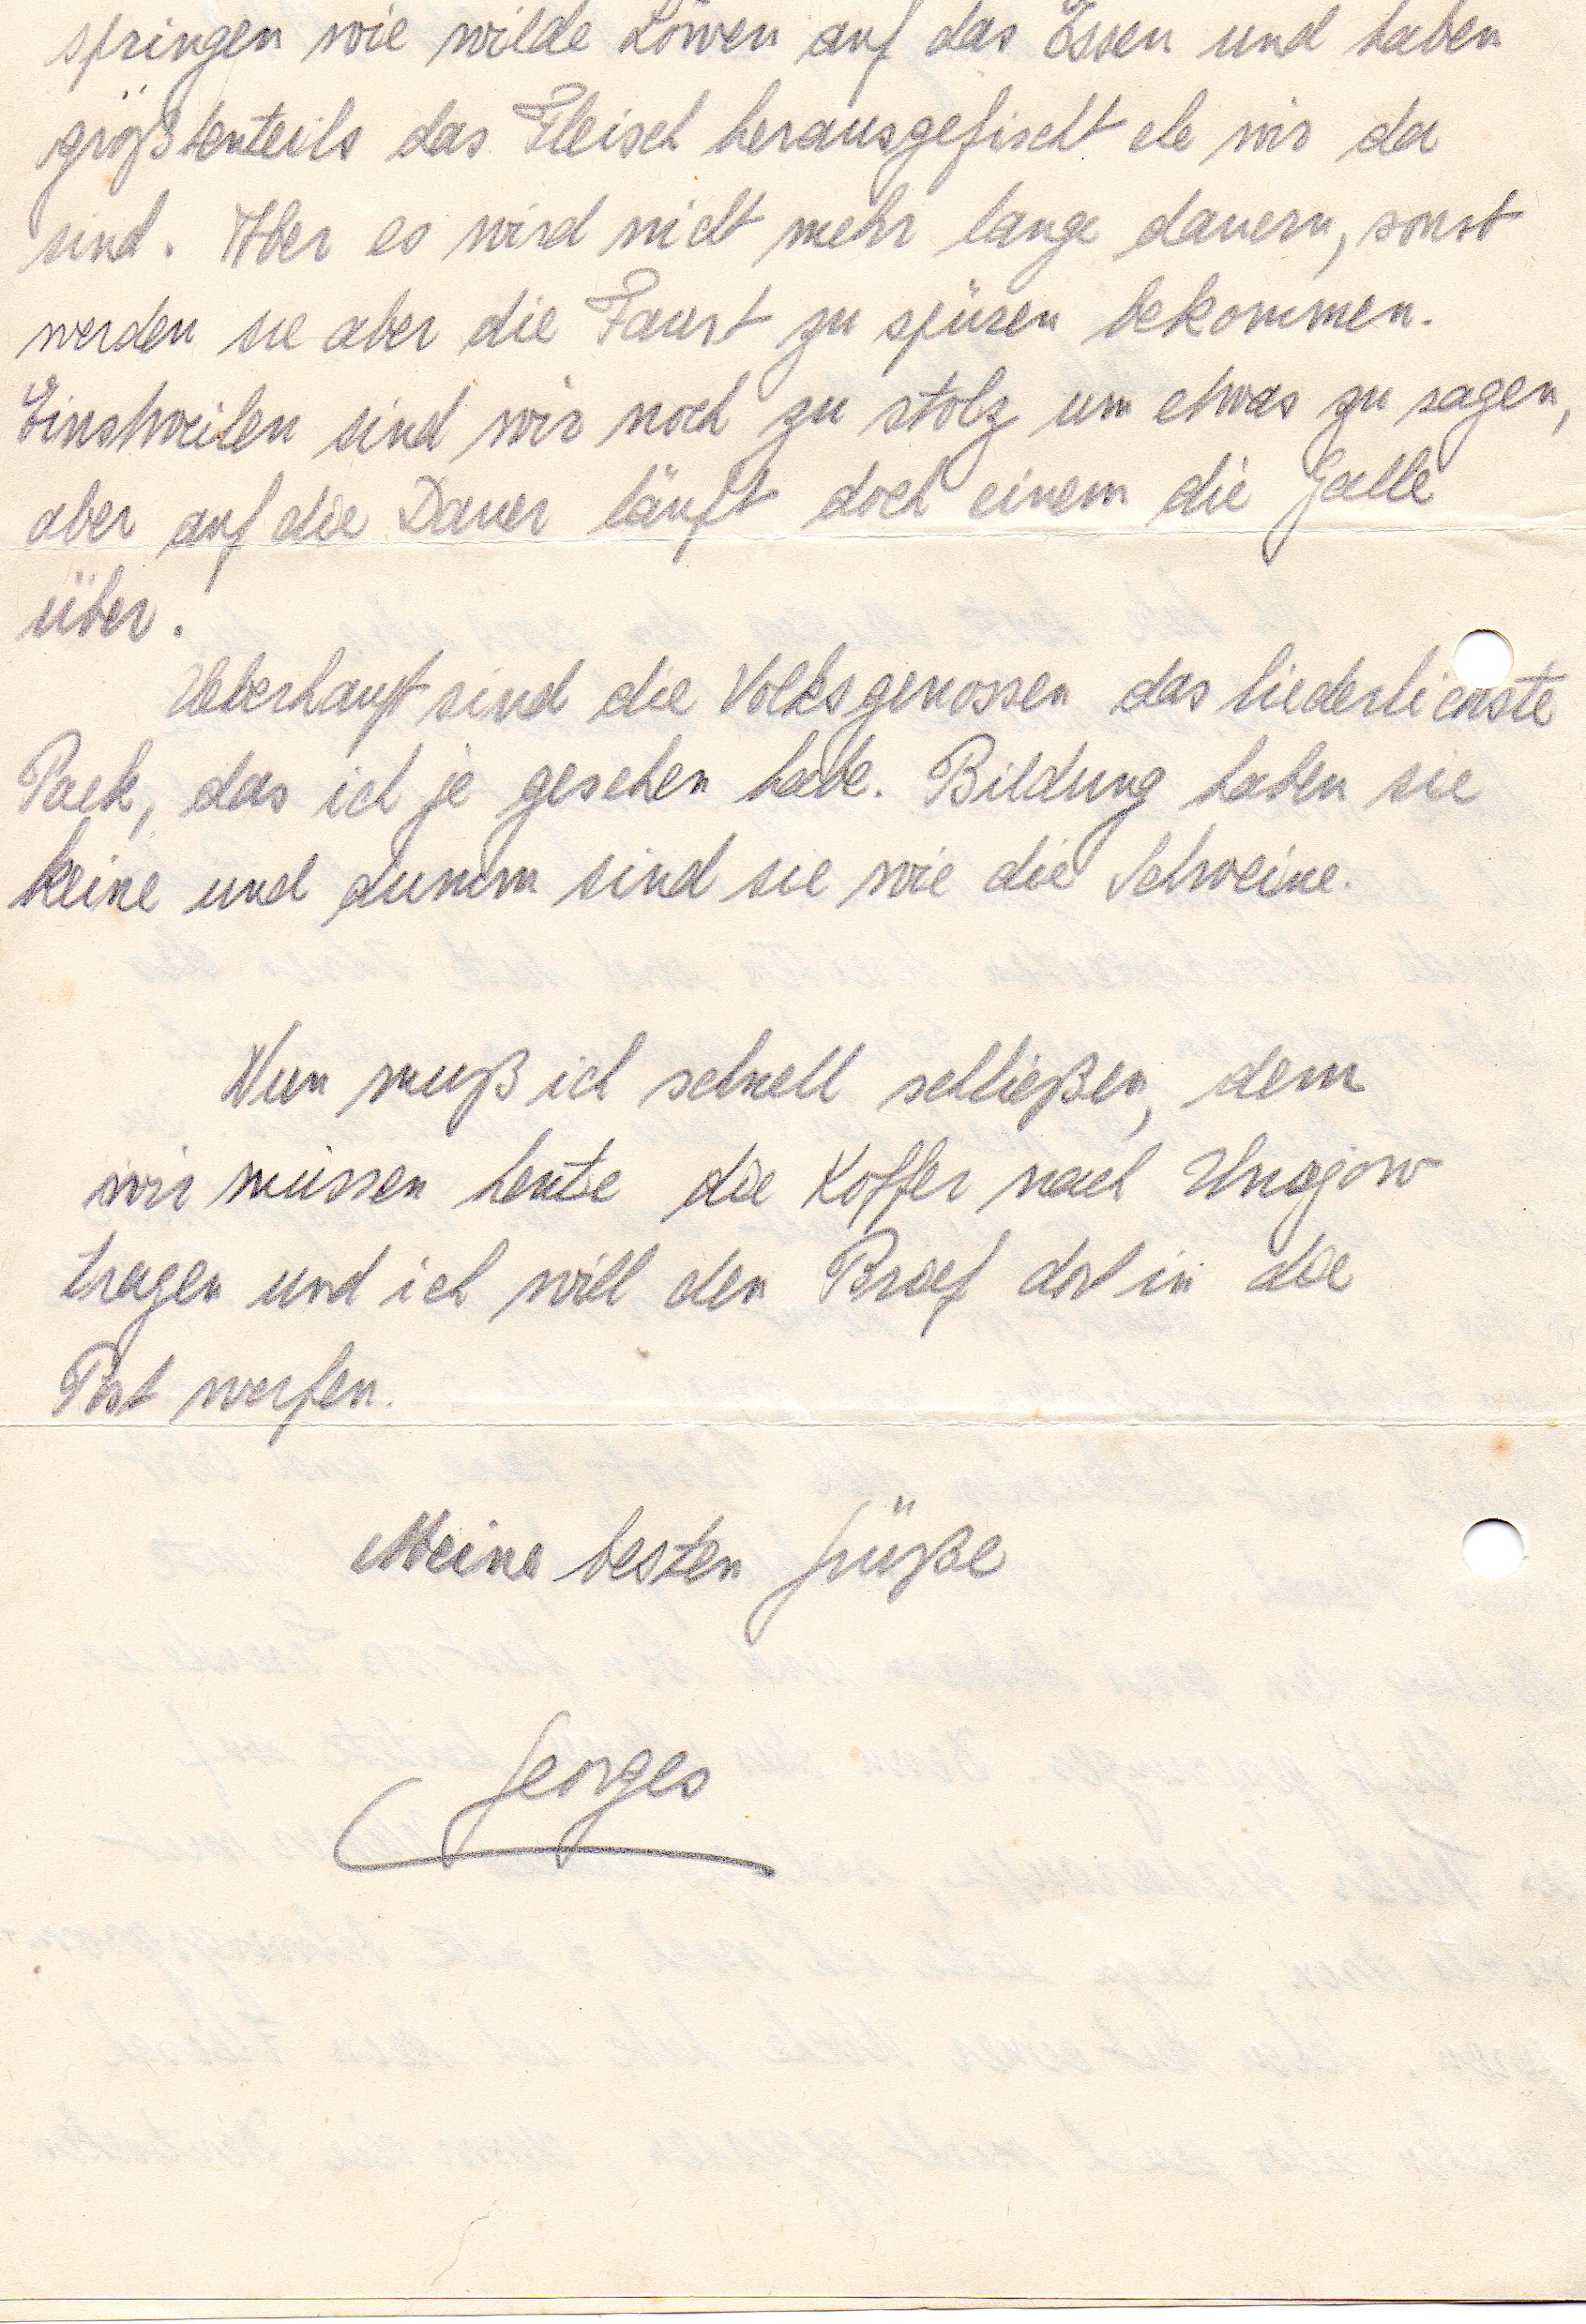 springen wie wilde Löwen auf das Essen und haben
größtenteils das Fleisch herausgefischt ehe wir da
sind. Aber es wird nicht mehr lange dauern, sonst
werden sie aber die Faust zu spüren bekommen.
Einstweilen sind wir noch zu stolz um etwas zu sagen,
aber auf die Dauer läuft doch einem die Galle
über.
Ueberhaupt sind die Volksgenossen das liederlichste
Pack, das ich je gesehen habe. Bildung haben sie
keine und dumm sind sie wie die Schweine.
Nun muß ich schnell schließen, denn
wir müssen heute die Koffer nach
tragen und ich will den Brief dort in die
Post werfen.
Meine besten Grüße
Georges